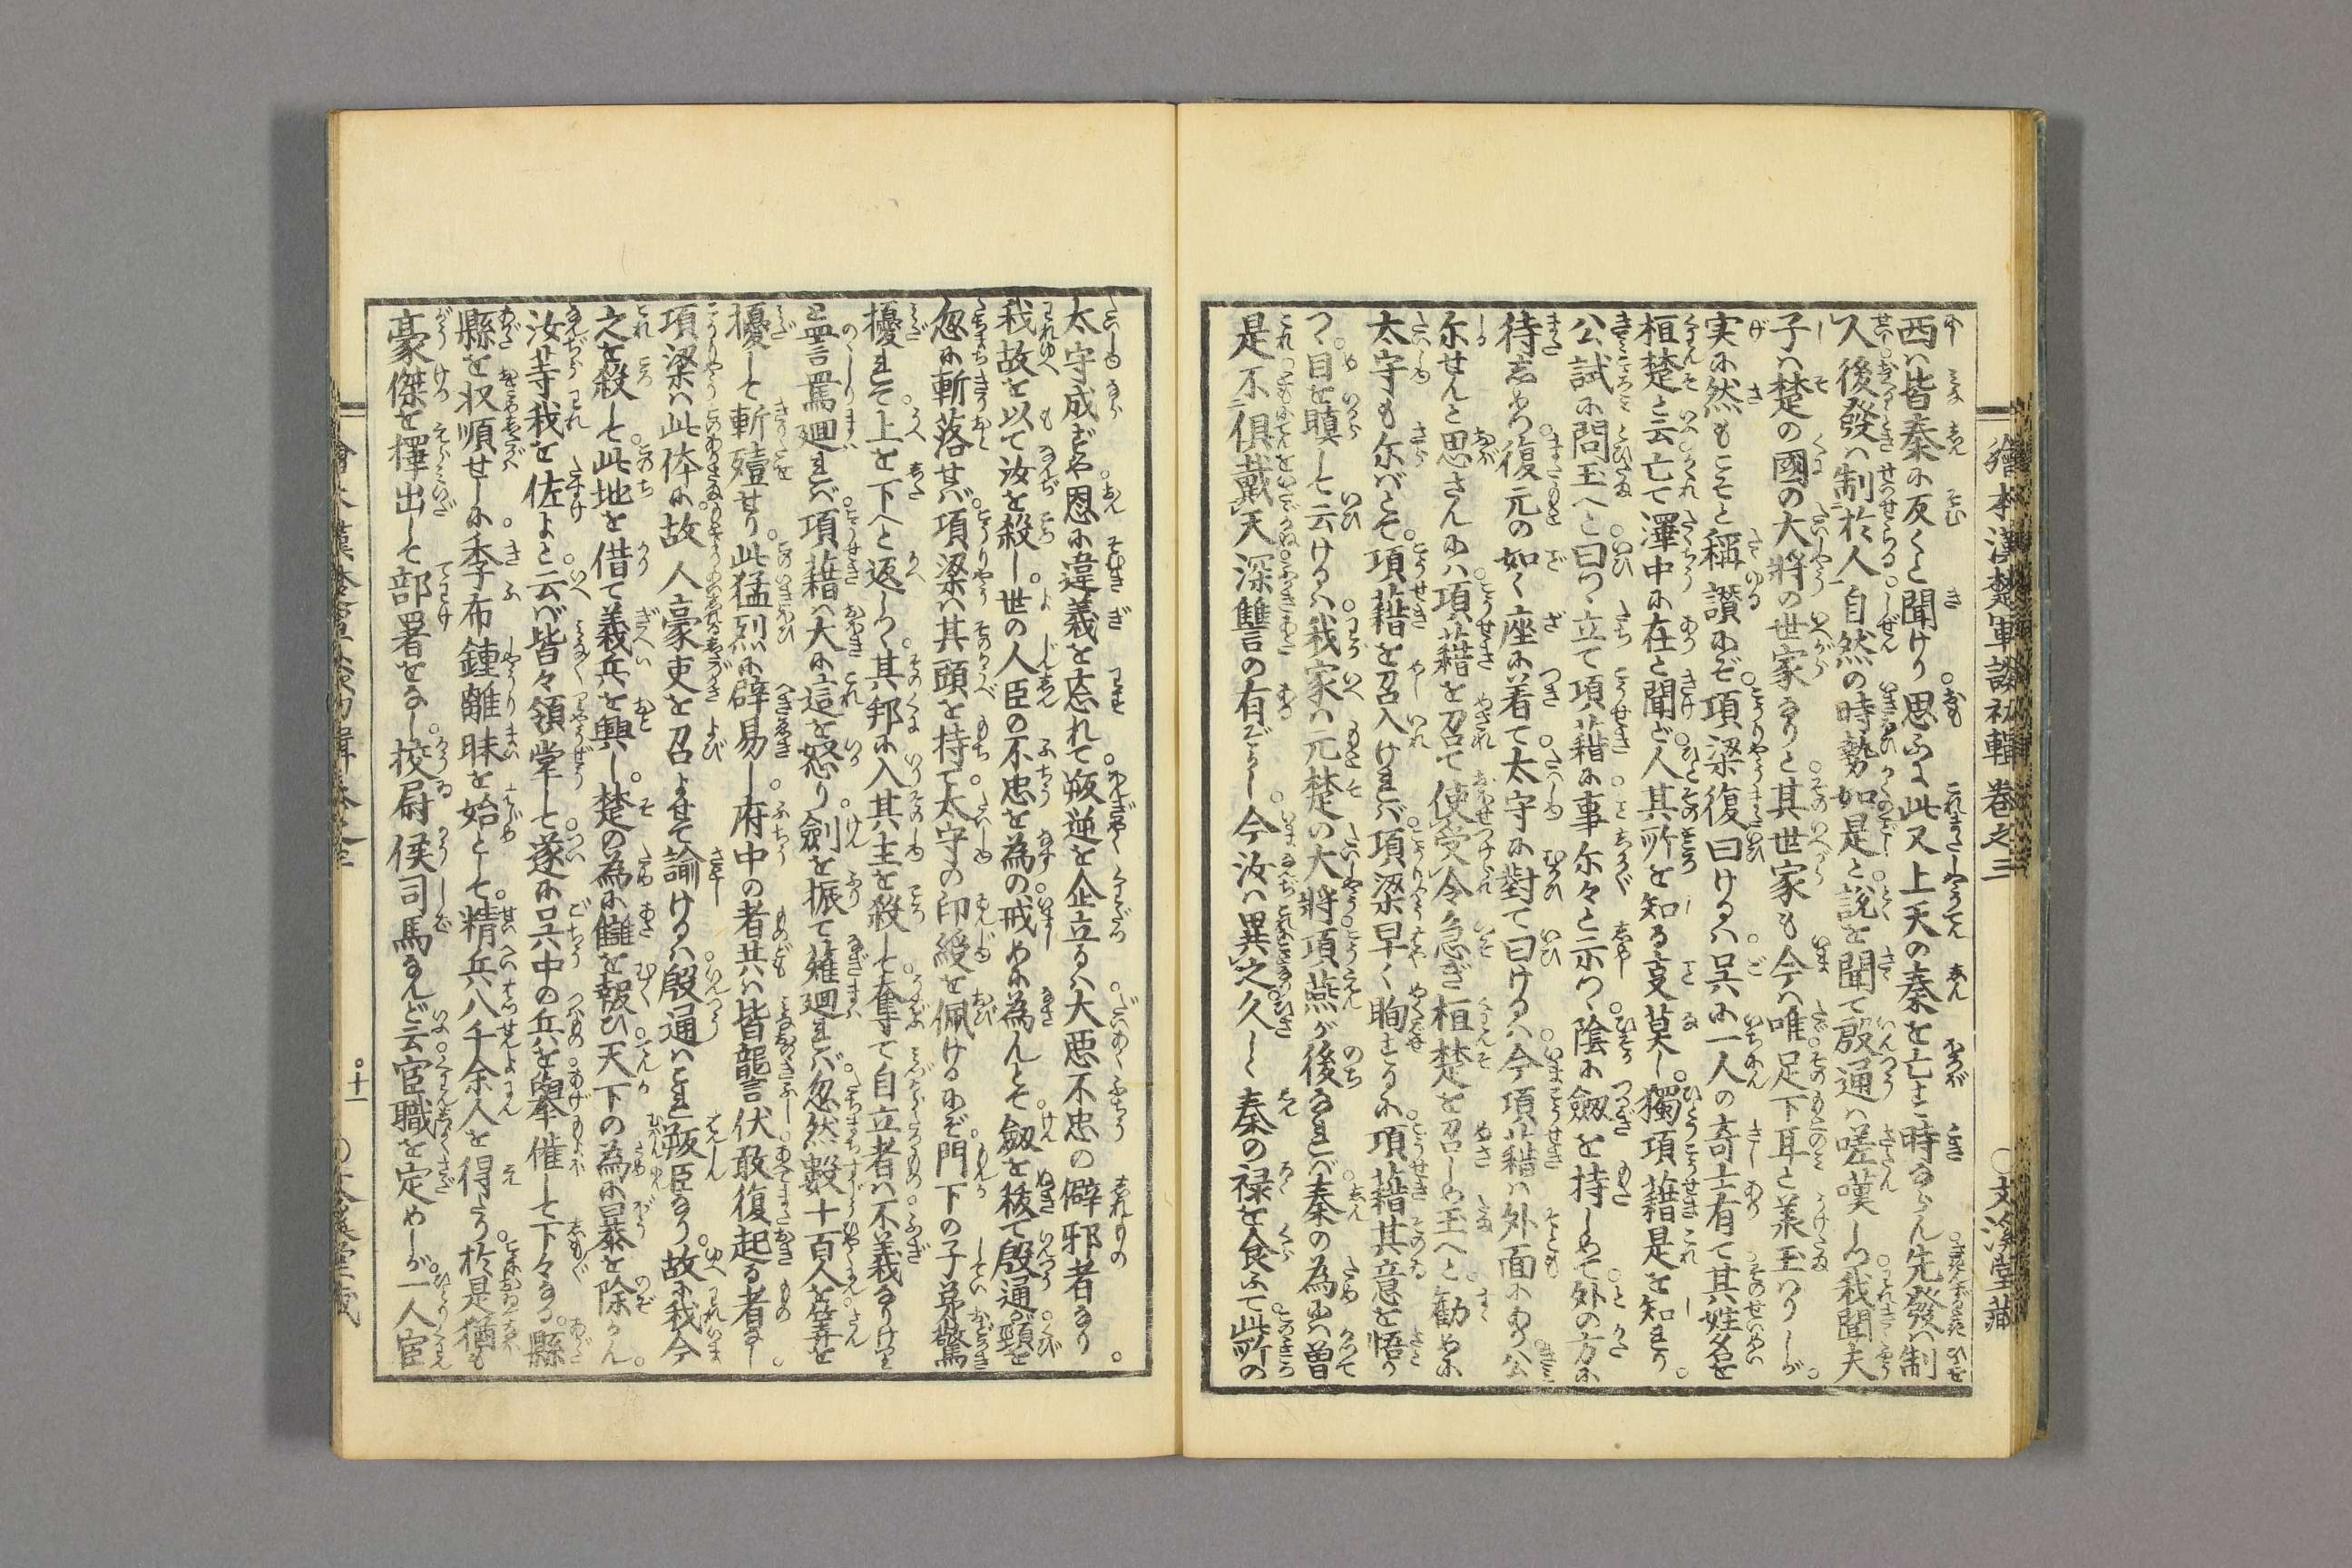 繪本漢楚軍談初輯 卷之三 ○文溪堂藏
西ハ皆秦に反くと聞けり。思ふに此又上天の秦を亡す時ならん。先發ハ制
人後發ハ制於人。自然の時勢如是と説を聞て殷通ハ嗟嘆しつ。我聞夫
子ハ楚の國の大將の世家なりと。其世家も今ハ唯足下耳と羕玉ハりしが。
実に然もこそと稱讃にぞ。項梁復曰けるハ。呉に一人の奇士有て其姓名を
桓楚と云。亡て澤中に在と聞ど。人其所を知る叓莫し。獨項藉是を知れり。
公試に問玉へと曰つゝ立て項藉に。事尓々と示つゝ。陰に劔を持しめて。外の方に
待しめつ。復元の如く座に着て。太守に對て曰けるハ。今項藉ハ外面にあり。公
尓せんと思さんにハ。項藉を召て使受令。急ぎ桓楚を召しめ玉へと。勸めに
太守も尓バとぞ。項藉を召入けれバ。項梁早く眴するに。項藉其意を悟り
つ。目を瞋して云けるハ。我家ハ元楚の大將。項燕が後なれバ。秦の為にハ曽
是不倶戴天深讐の有ぞかし。今汝ハ異之。久しく秦の禄を食ふて。此所の
太守成ずや。恩に違義を忘れて。叛逆を企立るハ。大悪不忠の僻邪者なり。
我故を以て汝を殺し。世の人臣の不忠を為の。戒めに為んとぞ。劔を秡て殷通が。頸を
忽に斬落せバ。項梁ハ其頭を持て。太守の印綬を佩けるにぞ。門下の子弟驚
擾れそ。上を下へと返しつ。其邦に入其主を殺して。奪て自立者ハ不義なりけりと
詈罵廻れバ。項藉ハ大に這を怒り。劍を振て薙廻れバ。忽然數十百人を算を
擾して斬殪せり。此猛烈に辟易し。府中の者共ハ皆讋伏。敢復起る者なし。
項梁ハ此体に。故人豪吏を召よせて諭けるハ。殷通ハこれ叛臣なり。故に我今
之を殺して。此地を借て義兵を興し。楚の為に讎を報ひ。天下の為に暴を除かん。
汝等我を佐よと。云バ皆々領掌して。遂に呉中の兵を。擧催して下々なる。縣
縣を収順せしに。季布鍾離昧を始として。精兵八千余人を得たり。於是猶も
豪傑を擇出して部署をなし。挍尉候司馬なんど云。官職を定めしが。一人宦
繪本漢楚軍談初輯卷之三 ○十一 ○文溪堂藏